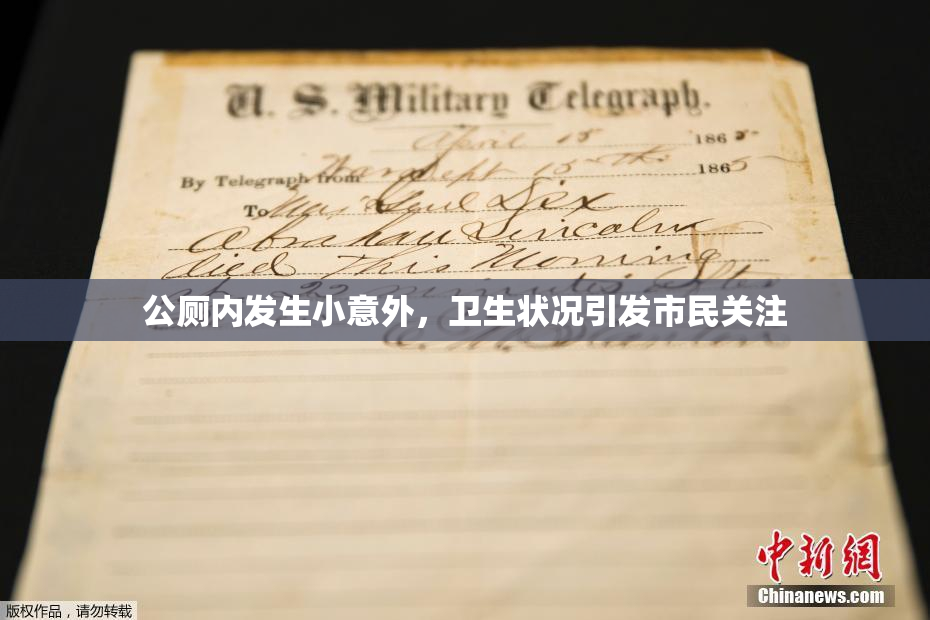 U. S. Military Telegraph.
April 15 1865
By Telegraph from War Dept 15th 1865
To Maj Genl Dix
Abraham Lincoln
died This Morning
at 22 minutes after
公厕内发生小意外，卫生状况引发市民关注
E. M. Stanton
中新網
Chinanews.com
版权作品，请勿转载